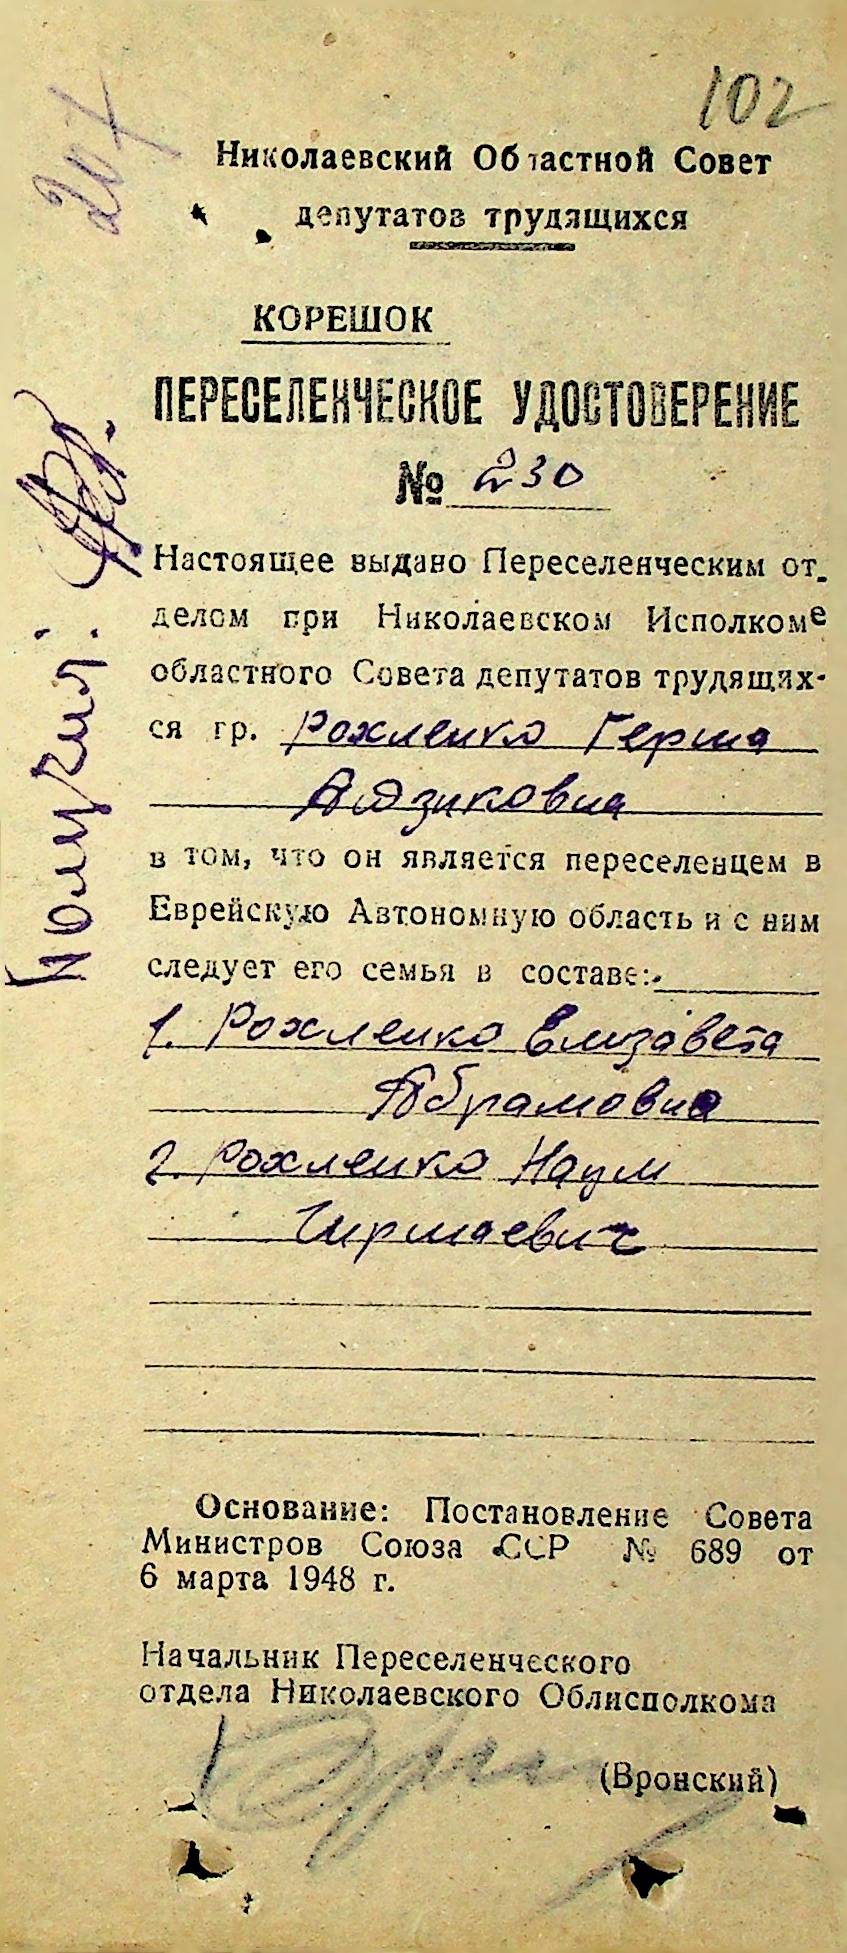 102
207
Николаевский Областной Совет
депутатов трудящихся
КОРЕШОК
ПЕРЕСЕЛЕНЧЕСКОЕ УДОСТОВЕРЕНИЕ
№ 230
Настоящее выдано Переселенческим от-
делом при Николаевском Исполкоме
областного Совета депутатов трудящих-
ся гр. Рохленко Герша
Айзиковича
в том, что он является переселенцем в
Еврейскую Автономную область и с ним
следует его семья в составе:
1. Рохленко Елизавета
Абрамовна
2. Рохленко Наум
Гиршаевич
Основание: Постановление Совета
Министров Союза ССР № 689 от
6 марта 1948 г.
Начальник Переселенческого
отдела Николаевского Облисполкома
(Вронский)